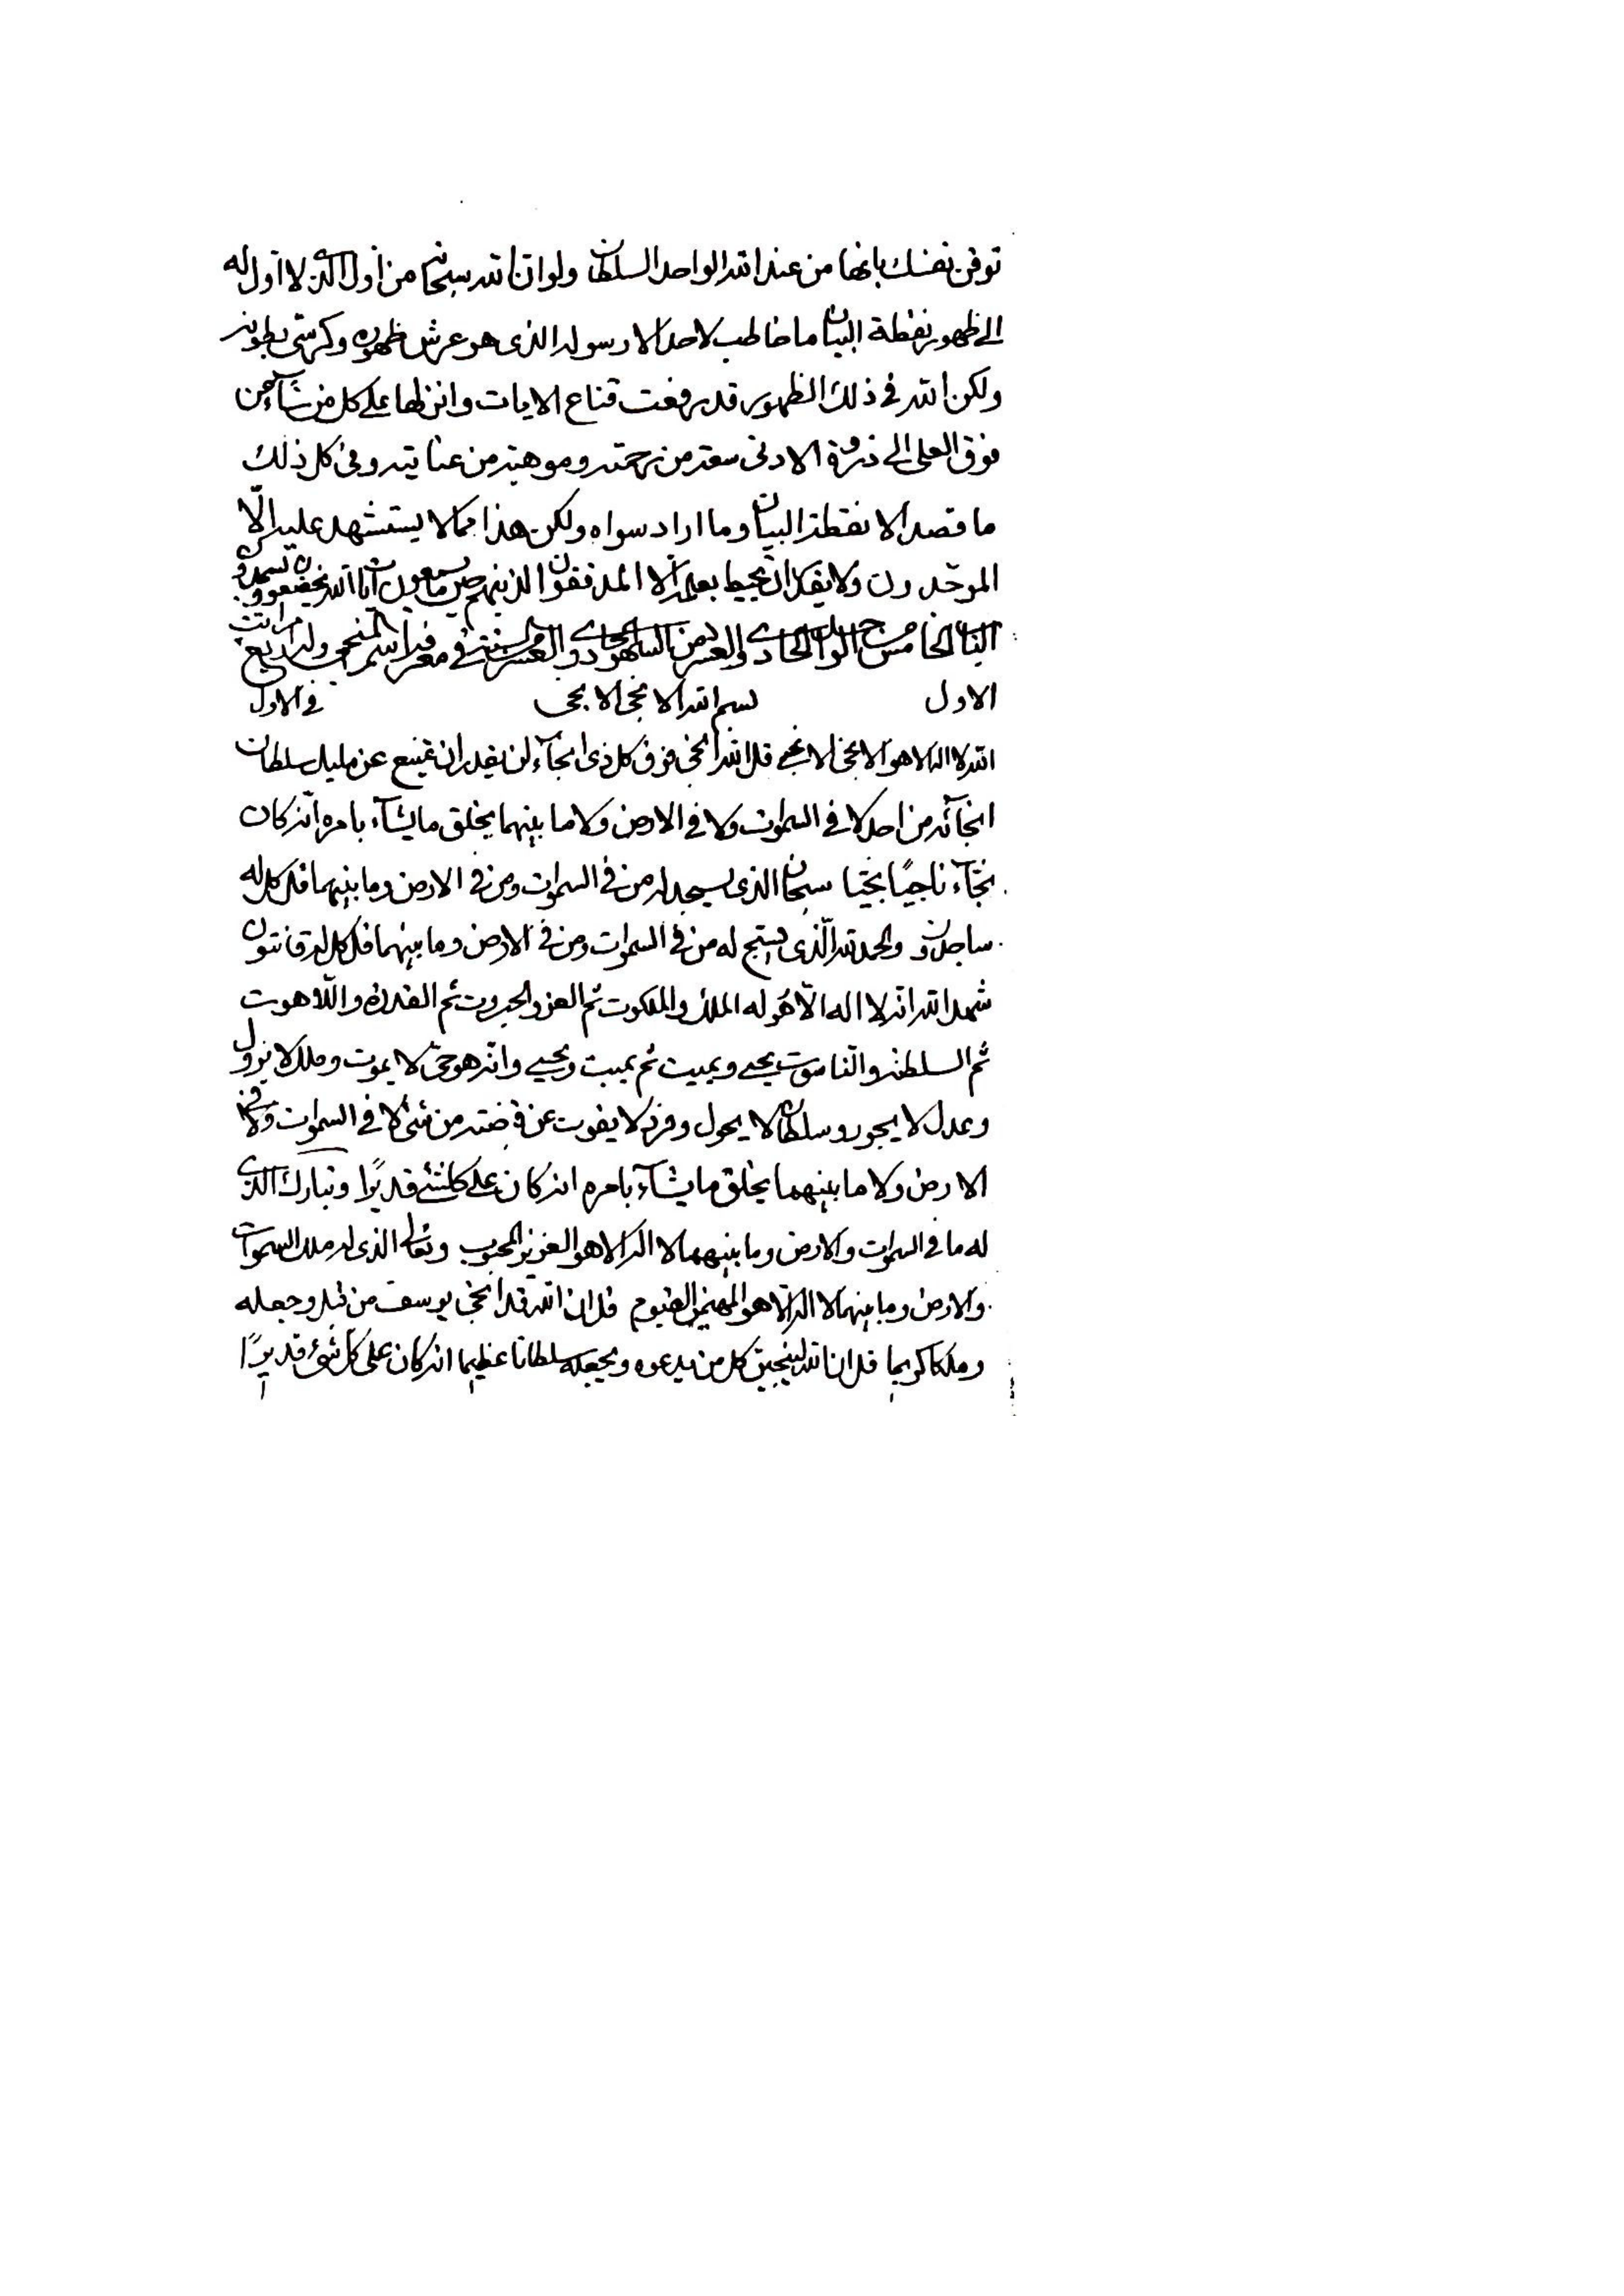 توقن نفسك بانها من عند الله الواحد السلطان ولو ان الله سبحانه من اول الذي لا اول له
الى ظهور نقطة البيان ما خاطب لاحد الا رسوله الذى هو عرش ظهوره وكرسى بطونه
ولكن الله فى ذلك الظهور قد رفعت قناع الايات وانزلها على كل من شآء من
فوق العلى الى ذروة الادنى سعة من رحمته وموهبة من عنايته وفى كل ذلك
ما قصد الا نقطة البيان وما اراد سواه ولكن هذا مما لا يستشهد عليه الّا
الموحّدون ولا يقدر ان يحيط بعلمه الا المدققون الذينهم حين ما يسمعون ايات الله يخضعون ويسجدون
الباب الخامس من الواحد الحادي والعشر من الشهر الحادي والعشر من السنة في معرفة اسم المنجى وله اربع مراتب
الاول بسم الله الانجى الانجى فى الاول
الله لا اله الا هو الانجى الانجى قل الله انجى فوق كل ذى انجآء لن يقدر ان يمتنع عن مليك سلطان
انجآئه من احد لا فى السموات ولا فى الارض ولا ما بينهما يخلق ما يشآء بامره انّه كان
نجّآء ناجيًا نجيّا سبحان الذى يسجد له من فى السموات ومن فى الارض وما بينهما قل كل له
ساجدون والحمد لله الّذى يسبّح له من فى السموات ومن فى الارض وما بينهما قل كل له قانتون
شهد الله انه لا اله الّا هُو له الملك والملكوت ثم العز والجبروت ثم القدرة واللّاهوت
ثم السلطنة والنّاسوت يحيى ويميت ثم يميت ويحيى وانّه هو حىّ لا يموت وملك لا يزول
وعدل لا يجور وسلطان لا يحول وفرد لا يفوت عن قبضته من شئ لا فى السموات ولا فى
الارض ولا ما بينهما يخلق ما يشآء بامره انه كان على كلشئ قديرًا وتبارك الذي
له ما فى السموات والارض وما بينهما لا اله الا هو العزيز المحبوب وتعالى الذى له ملك السموات
والارض وما بينهما لا اله الّا هو المهيمن القيوم قل ان الله قد انجى يوسف من قبل وجعله
وملكا كريما قل ان الله لينجين كل من يدعوه ويجعله سلطانا عظيما انه كان على كل شئ قديرًا